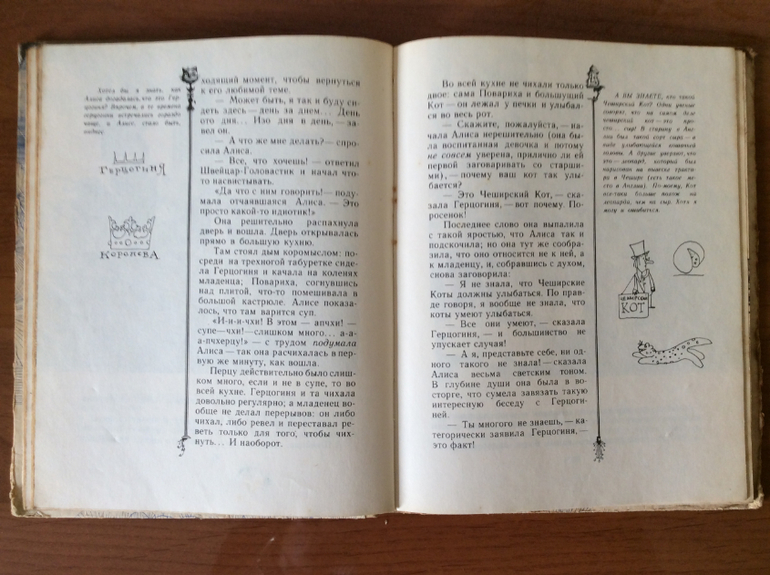 Хотел бы я знать, как
Алиса догадалась, что это Гер-
цогиня? Впрочем, в те времена
герцогини встречались гораздо
чаще, и Алисе, стало быть,
виднее
ГЕРЦОГИНЯ
КОРОЛЕВА
ходящий момент, чтобы вернуться
к его любимой теме.
— Может быть, я так и буду си-
деть здесь — день за днем... День
ото дня... Изо дня в день, — за-
вел он.
— А что же мне делать? — спро-
сила Алиса.
— Все, что хочешь! — ответил
Швейцар-Головастик и начал что-
то насвистывать.
«Да что с ним говорить! — поду-
мала отчаявшаяся Алиса. —
Это просто какой-то идиотик!»
Она решительно распахнула
дверь и вошла. Дверь открывалась
прямо в большую кухню.
Там стоял дым коромыслом: по-
среди на трехногой табуретке сиде-
ла Герцогиня и качала на коленях
младенца; Повариха, согнувшись
над плитой, что-то помешивала в
большой кастрюле. Алисе показа-
лось, что там варится суп.
«И-и-и-чхи! В этом — апчхи! —
супе—чхи!—слишком много... а-а-
а-пчхерцу!» — с трудом подумала
Алиса — так она расчихалась в пер-
вую же минуту, как вошла.
Перцу действительно было слиш-
ком много, если и не в супе, то во
всей кухне. Герцогиня и та чихала
довольно регулярно; а младенец во-
обще не делал перерывов: он либо
чихал, либо ревел и переставал ре-
веть только для того, чтобы чих-
нуть... И наоборот.
Во всей кухне не чихали только
двое: сама Повариха и большущий
Кот — он лежал у печки и улыбал-
ся во весь рот.
— Скажите, пожалуйста, — на-
чала Алиса нерешительно (она бы-
ла воспитанная девочка и потому
не совсем уверена, прилично ли ей
первой заговаривать со старши-
ми), — почему ваш кот так улы-
бается?
— Это Чеширский Кот, — ска-
зала Герцогиня, — вот почему. По-
росенок!
Последнее слово она выпалила
с такой яростью, что Алиса так и
подскочила; но она тут же сообра-
зила, что оно относится не к ней, а
к младенцу, и, собравшись с духом,
снова заговорила:
— Я не знала, что Чеширские
Коты должны улыбаться. По прав-
де говоря, я вообще не знала, что
коты умеют улыбаться.
— Все они умеют, — сказала
Герцогиня, — и большинство не
упускает случая!
— А я, представьте себе, ни од-
ного такого не знала! — сказала
Алиса весьма светским тоном.
В глубине души она была в во-
сторге, что сумела завязать такую
интересную беседу с Герцоги-
ней.
— Ты многого не знаешь, — ка-
тегорически заявила Герцогиня, —
это факт!
А ВЫ ЗНАЕТЕ, кто такой
Чеширский Кот? Одни ученые
говорят, что на самом деле
чеширский кот — это про-
сто... сыр! В старину в Анг-
лии был такой сорт сыра — в
виде улыбающейся кошачьей
головы. А другие уверяют, что
это — леопард, который был
нарисован на вывеске тракти-
ра в Чешире (есть такое ме-
сто в Англии). По-моему, Кот
все-таки больше похож на
леопарда, чем на сыр. Хоть я
могу и ошибаться.
КОТ